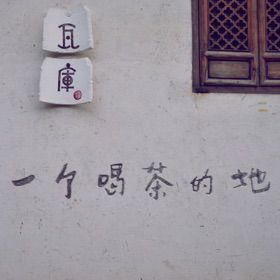 瓦
庫
一个喝茶的地